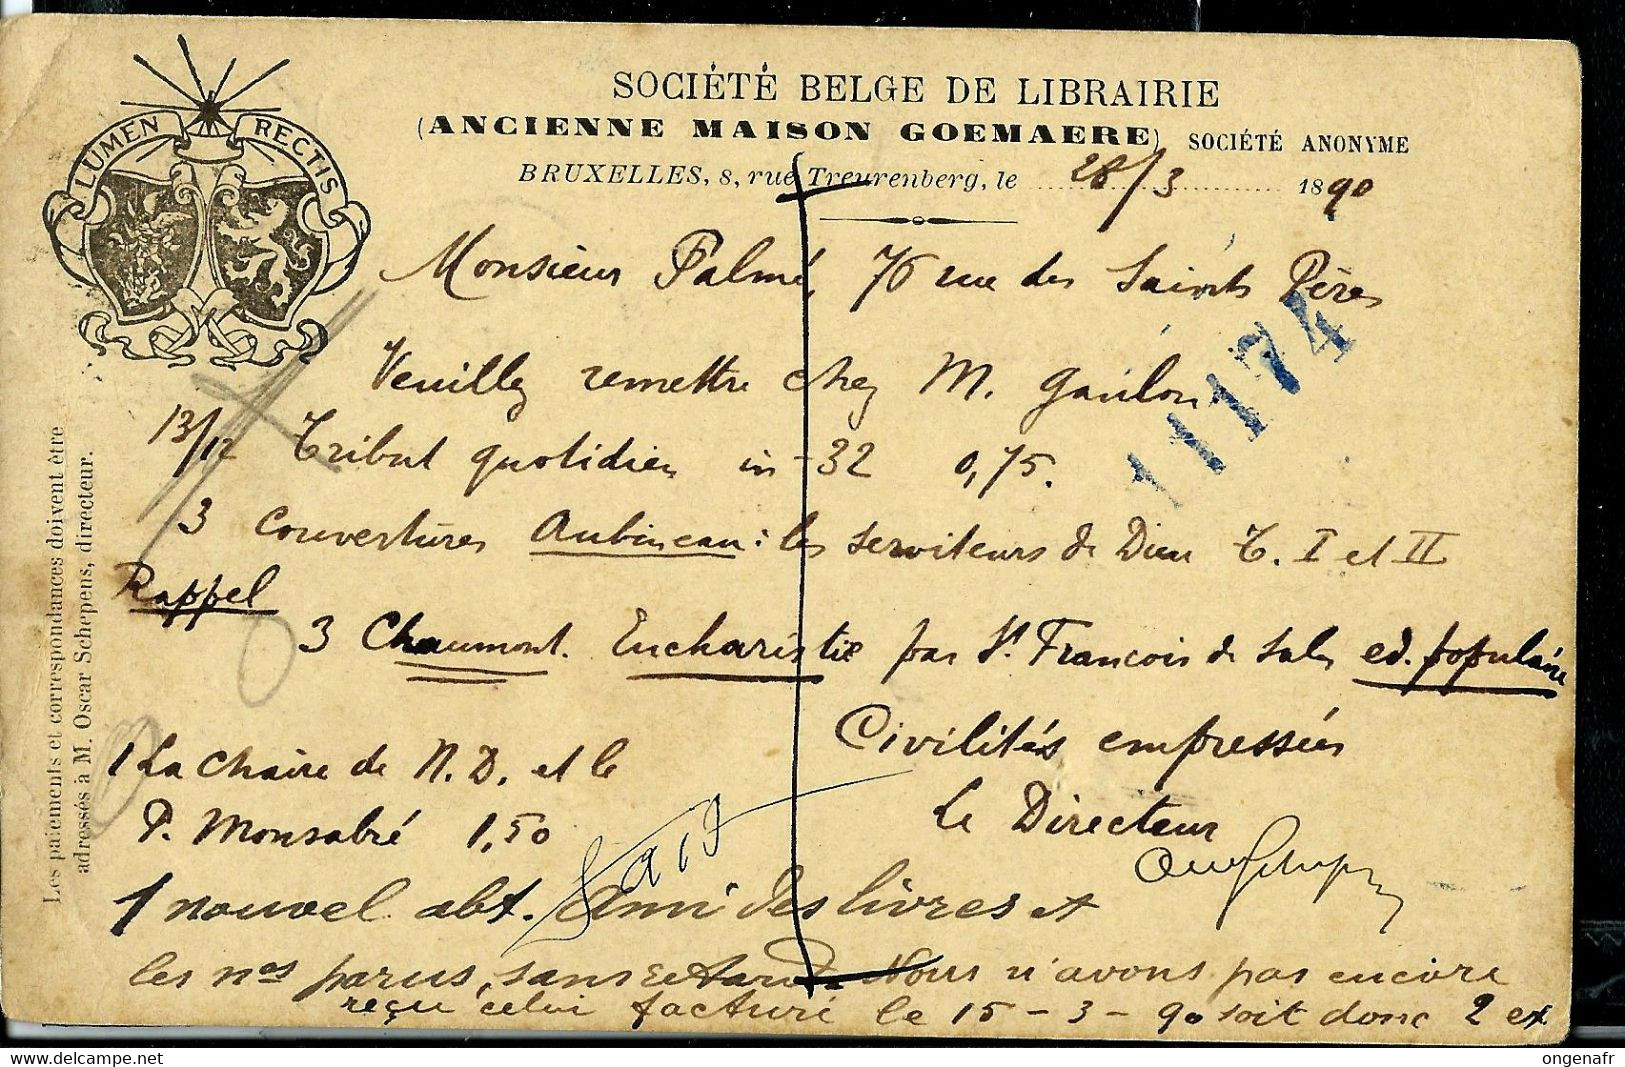 LUMEN RECTIS
SOCIÉTÉ BELGE DE LIBRAIRIE
(ANCIENNE MAISON GOEMAERE) SOCIÉTÉ ANONYME
BRUXELLES, 8, rue Treurenberg, le 28/3 1890
Monsieur Palmé, 76 rue des Saints Pères
11174
Veuillez remettre chez M. Gaulon
13/12 Tribut quotidien in-32 0,75.
3 Couvertures Aubineau : les serviteurs de Dieu T. I et II
Rappel
3 Chaumont. Eucharistie par St François de Sales ed. populaire
Civilités empressées
Le Directeur
1 La Chaire de N. D. et le
P. Monsabré 1,50
1 nouvel abt. Ami des livres et
les nos parus, sans retard Nous n'avons pas encore
reçu celui facturé le 15-3-90 soit donc 2 ex
Les paiements et correspondances doivent être
adressés à M. Oscar Schepens, directeur.
ongenafr